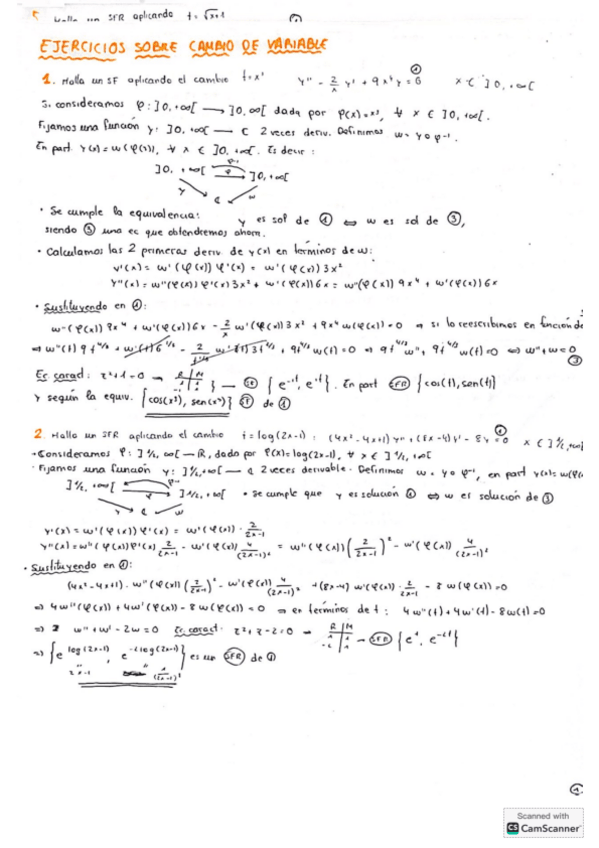 un SFR aplicando t = √x+1
EJERCICIOS SOBRE CAMBIO DE VARIABLE
1. Halla un SF aplicando el cambio t=x³ y'' - 2/x y' + 9x⁴y = 0 ① x ∈ ]0,+∞[
Si consideramos φ: ]0,+∞[ → ]0,∞[ dada por φ(x)=x³, ∀ x ∈ ]0,+∞[.
Fijamos una función y: ]0,+∞[ → ℂ 2 veces deriv. Definimos w = y∘φ⁻¹.
En part y(x) = w(φ(x)), ∀ x ∈ ]0,+∞[. Es decir:
]0,+∞[ φ⁻¹ φ ]0,+∞[
y ℂ w
· Se cumple la equivalencia: y es sol de ① ⇔ w es sol de ③,
siendo ③ una ec que obtendremos ahora.
· Calculamos las 2 primeras deriv de y(x) en términos de w:
y'(x) = w'(φ(x)) φ'(x) = w'(φ(x)) 3x²
y''(x) = w''(φ(x)) φ'(x) 3x² + w'(φ(x)) 6x = w''(φ(x)) 9x⁴ + w'(φ(x)) 6x
· Sustituyendo en ①:
w''(φ(x)) 9x⁴ + w'(φ(x)) 6x - 2/x w'(φ(x)) 3x² + 9x⁴ w(φ(x)) = 0 → si lo reescribimos en función de
⇒ w''(t) 9t^4/3 + w'(t) 6t^1/3 - 2/t^1/3 w'(t) 3t^2/3 + 9t^4/3 w(t) = 0 ⇒ 9t^4/3 w'' + 9t^4/3 w(t) = 0 ⇔ w''+w=0 ③
Ec carac: r²+1=0 → R M } → SF {e^-it, e^it}. En part SFR {cos(t), sen(t)}
Y según la equiv. {cos(x³), sen(x³)} SF de ①
2. Halla un SFR aplicando el cambio t = log(2x-1) : (4x²-4x+1) y'' + (8x-4) y' - 8y = 0 ① x ∈ ]½,+∞[
→ Consideramos φ: ]½,∞[ → ℝ, dada por φ(x)=log(2x-1), ∀ x ∈ ]½,∞[
· Fijamos una función y: ]½,+∞[ → ℂ 2 veces derivable. Definimos w = y∘φ⁻¹, en part y(x)=w(φ(x)
]½,+∞[ φ⁻¹ φ ]½,+∞[ · Se cumple que y es solución ① ⇔ w es solución de ③
y ℂ w
y'(x) = w'(φ(x)) φ'(x) = w'(φ(x)) · 2/2x-1
y''(x) = w''(φ(x)) φ'(x) 2/2x-1 - w'(φ(x)) 4/(2x-1)² = w''(φ(x)) (2/2x-1)² - w'(φ(x)) 4/(2x-1)²
· Sustituyendo en ①:
(4x²-4x+1) · w''(φ(x)) (2/2x-1)² - w'(φ(x)) 4/(2x-1)² + (8x-4) w'(φ(x)) · 2/2x-1 - 8 w(φ(x)) = 0
⇒ 4w''(φ(x)) + 4w'(φ(x)) - 8w(φ(x)) = 0 → en términos de t: 4w''(t) + 4w'(t) - 8w(t) = 0
⇒ w'' + w' - 2w = 0 Ec caract: r²+r-2=0 → R M 1 1 -2 1 → SFR {e^t, e^-2t}
⇒ {e^log(2x-1), e^-2log(2x-1)} es un SFR de ①
2x-1 1/(2x-1)²
Scanned with
CS CamScanner